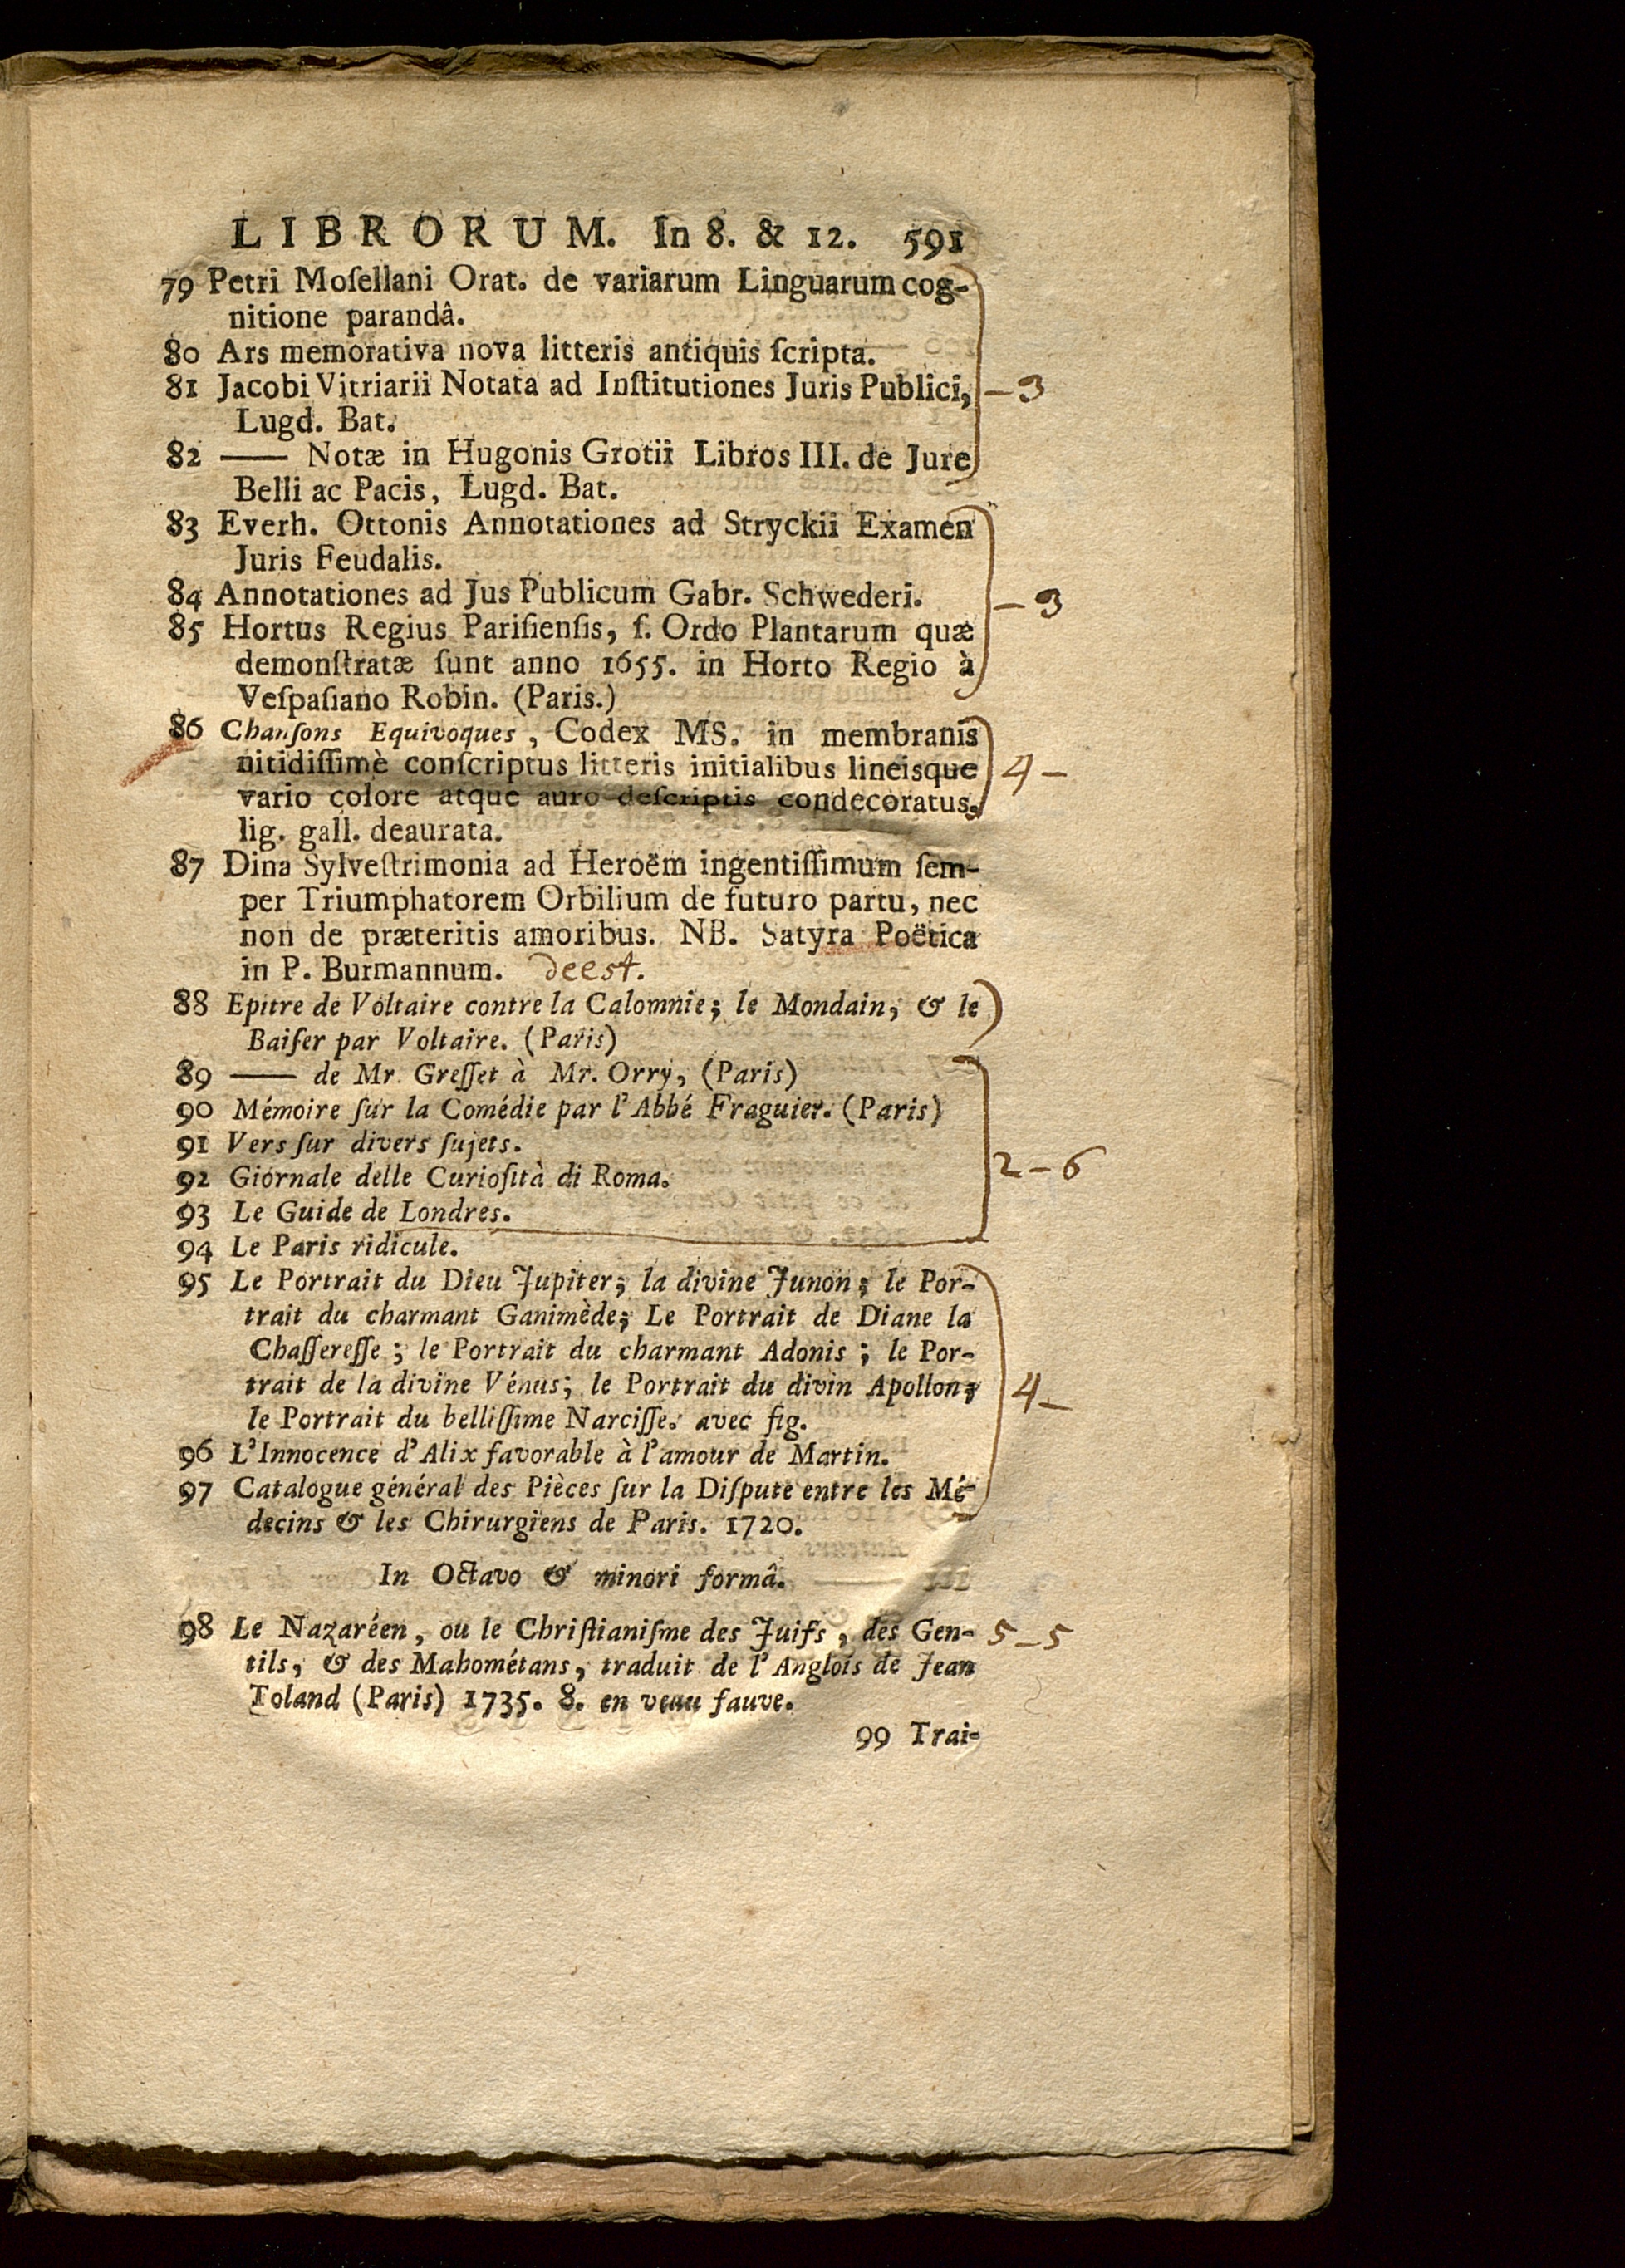 LIBRORUM. In 8. & 12. 591
79 Petri Moſellani Orat. de variarum Linguarum cog-
nitione parandâ.
80 Ars memorativa nova litteris antiquis ſcripta.
81 Jacobi Vitriarii Notata ad Inſtitutiones Juris Publici, - 3
Lugd. Bat.
82 —— Notæ in Hugonis Grotii Libros III. de Jure
Belli ac Pacis, Lugd. Bat.
83 Everh. Ottonis Annotationes ad Stryckii Examen
Juris Feudalis.
84 Annotationes ad Jus Publicum Gabr. Schwederi. - 3
85 Hortus Regius Pariſienſis, ſ. Ordo Plantarum quæ
demonſtratæ ſunt anno 1655. in Horto Regio à
Veſpaſiano Robin. (Paris.)
86 Chanſons Equivoques, Codex MS. in membranis
nitidiſſimè conſcriptus litteris initialibus lineisque 4 -
vario colore atque auro deſcriptis condecoratus.
lig. gall. deaurata.
87 Dina Sylveſtrimonia ad Heroëm ingentiſſimum ſem-
per Triumphatorem Orbilium de futuro partu, nec
non de præteritis amoribus. NB. Satyra Poëtica
in P. Burmannum. deest.
88 Epitre de Voltaire contre la Calomnie; le Mondain, & le
Baiſer par Voltaire. (Paris)
89 —— de Mr. Greſſet à Mr. Orry, (Paris)
90 Mémoire ſur la Comédie par l'Abbé Fraguier. (Paris)
91 Vers ſur divers ſujets.
92 Giornale delle Curioſità di Roma. 2 - 6
93 Le Guide de Londres.
94 Le Paris ridicule.
95 Le Portrait du Dieu Jupiter; la divine Junon; le Por-
trait du charmant Ganimède; Le Portrait de Diane la
Chaſſereſſe; le Portrait du charmant Adonis; le Por-
trait de la divine Vénus; le Portrait du divin Apollon; 4 -
le Portrait du belliſſime Narciſſe. avec fig.
96 L'Innocence d'Alix favorable à l'amour de Martin.
97 Catalogue général des Pièces ſur la Diſpute entre les Mé-
decins & les Chirurgiens de Paris. 1720.
In Octavo & minori formâ.
98 Le Nazaréen, ou le Chriſtianiſme des Juifs, des Gen- 5 - 5
tils, & des Mahométans, traduit de l'Anglois de Jean
Toland (Paris) 1735. 8. en veau fauve.
99 Trai-